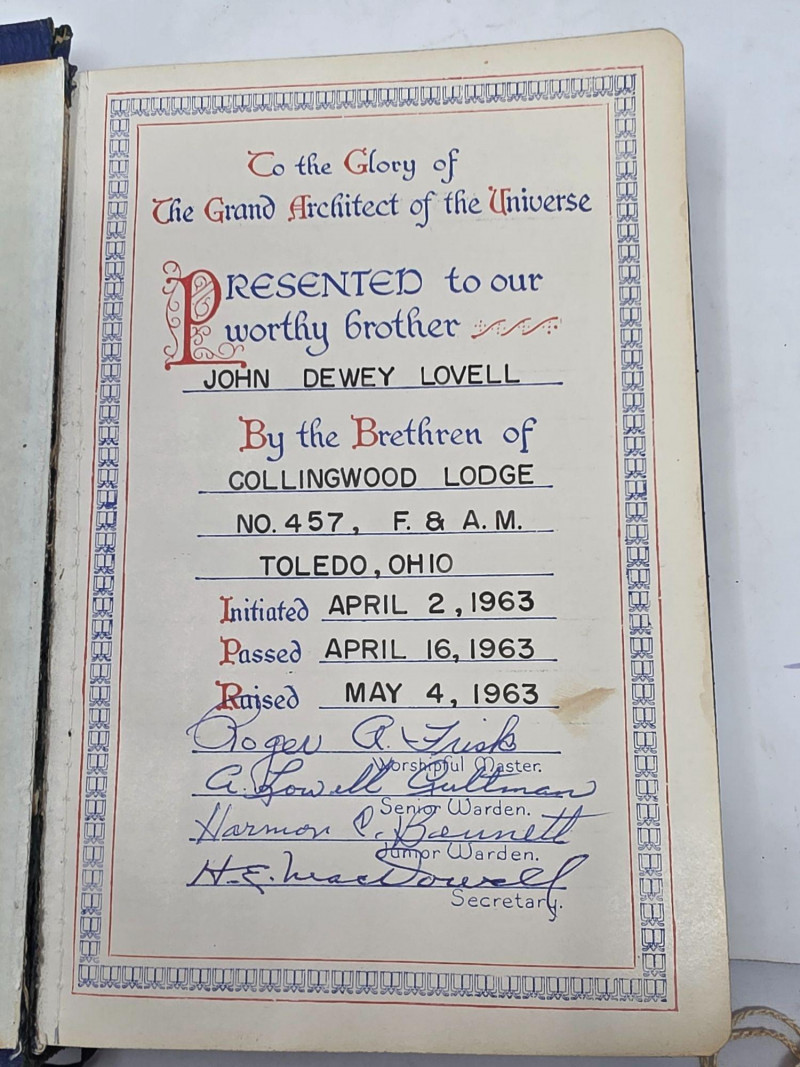 To the Glory of
The Grand Architect of the Universe
PRESENTED to our
worthy brother
JOHN DEWEY LOVELL
By the Brethren of
COLLINGWOOD LODGE
NO. 457, F. & A.M.
TOLEDO, OHIO
Initiated APRIL 2, 1963
Passed APRIL 16, 1963
Raised MAY 4, 1963
Roger A. Frisk
Worshipful Master.
A. Lowell
Senior Warden.
Harmon P. Bennett
Junior Warden.
H.E. MacDowell
Secretary.